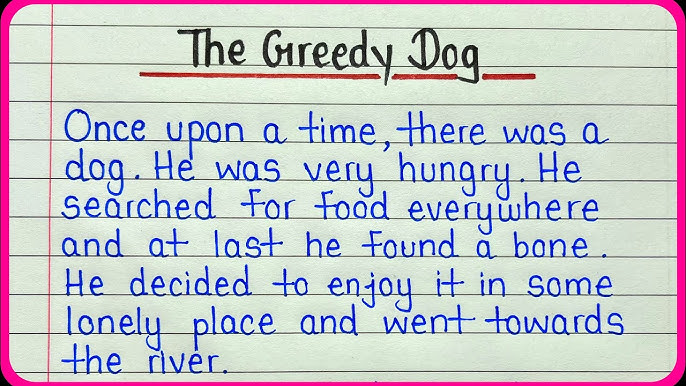 The Greedy Dog
Once upon a time, there was a
dog. He was very hungry. He
searched for food everywhere
and at last he found a bone.
He decided to enjoy it in some
lonely place and went towards
the river.